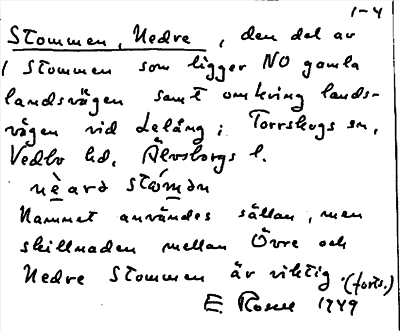 1-4
Stommen, Nedre, den del av
Stommen som ligger NO gamla
landsvägen samt omkring lands-
vägen vid Lelång; Torrskogs sn,
Vedbo hd, Älvsborgs l.
nèard stómən
Namnet användes sällan, men
skillnaden mellan Övre och
Nedre Stommen är viktig. (forts.)
E. Rosell 1949